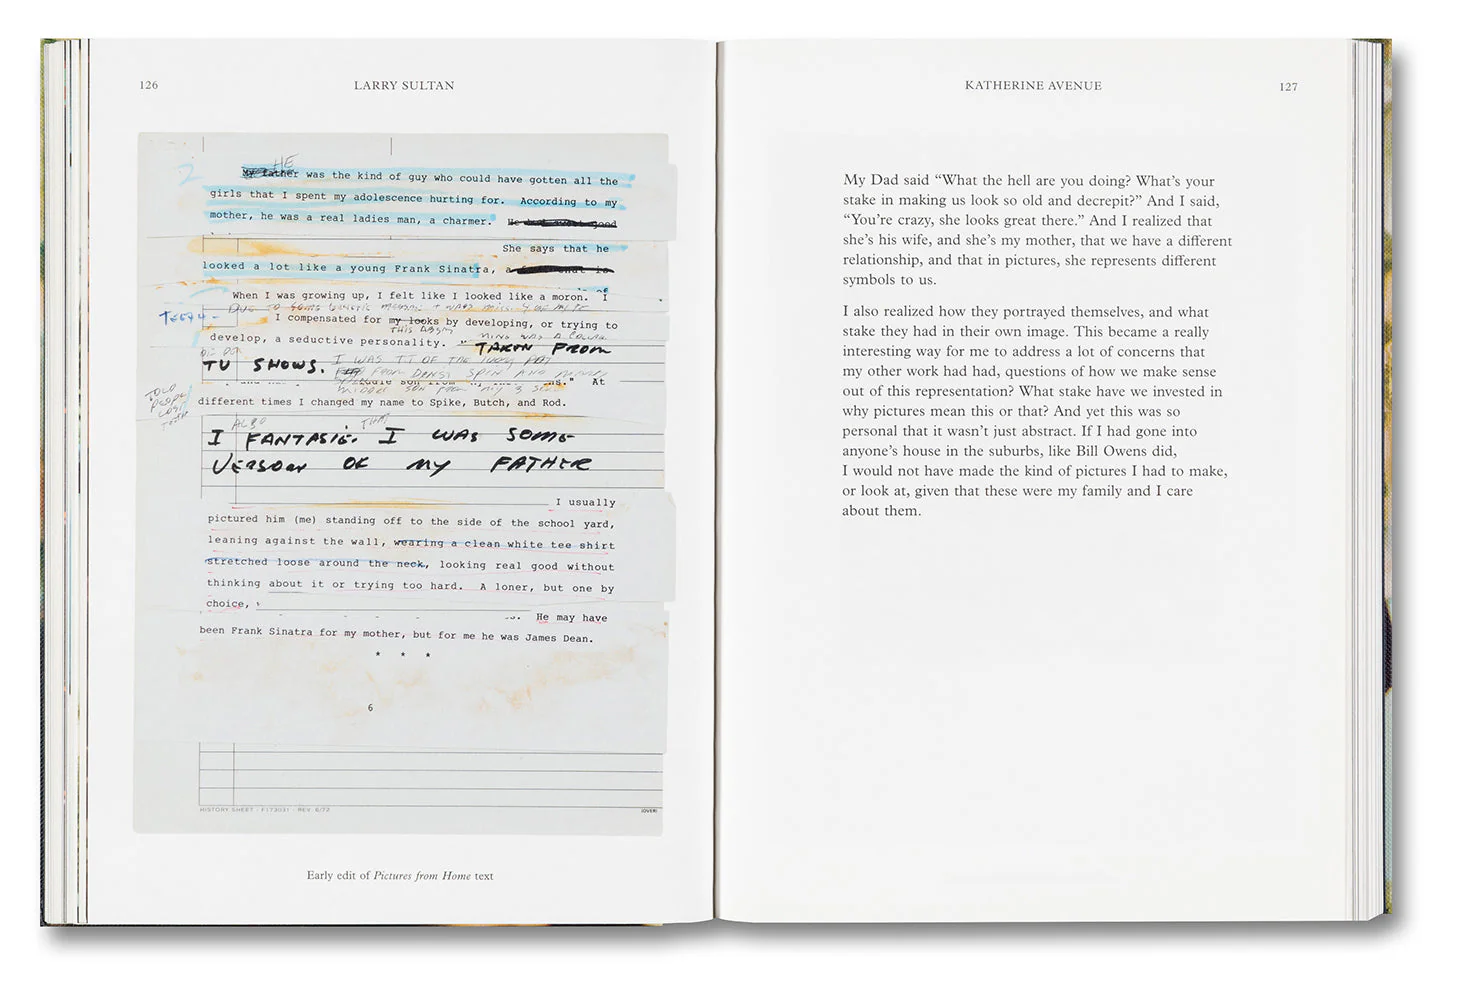 126
LARRY SULTAN
2
HE
My father was the kind of guy who could have gotten all the
girls that I spent my adolescence hurting for. According to my
mother, he was a real ladies man, a charmer. He had most good
She says that he
looked a lot like a young Frank Sinatra, a
When I was growing up, I felt like I looked like a moron. I
DUE TO SOME GENETIC
TEETH -
I compensated for my looks by developing, or trying to
THIS
develop, a seductive personality. TAKEN FROM
TV SHOWS.
I WAS
At
TOLD
PEOPLE
different times I changed my name to Spike, Butch, and Rod.
ALSO THAT
I FANTASIE. I WAS SOME
VERSION OF MY FATHER
I usually
pictured him (me) standing off to the side of the school yard,
leaning against the wall, wearing a clean white tee shirt
stretched loose around the neck, looking real good without
thinking about it or trying too hard. A loner, but one by
choice,
He may have
been Frank Sinatra for my mother, but for me he was James Dean.
* * *
6
HISTORY SHEET - F173031 - REV. 6/72
(OVER)
Early edit of Pictures from Home text
KATHERINE AVENUE
127
My Dad said “What the hell are you doing? What’s your
stake in making us look so old and decrepit?” And I said,
“You’re crazy, she looks great there.” And I realized that
she’s his wife, and she’s my mother, that we have a different
relationship, and that in pictures, she represents different
symbols to us.
I also realized how they portrayed themselves, and what
stake they had in their own image. This became a really
interesting way for me to address a lot of concerns that
my other work had had, questions of how we make sense
out of this representation? What stake have we invested in
why pictures mean this or that? And yet this was so
personal that it wasn’t just abstract. If I had gone into
anyone’s house in the suburbs, like Bill Owens did,
I would not have made the kind of pictures I had to make,
or look at, given that these were my family and I care
about them.